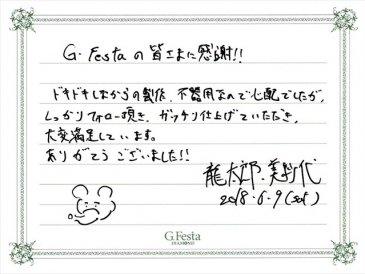 G.Festaの皆さまに感謝!!
ドキドキしながらの製作、不器用なので心配でしたが、
しっかりフォロー頂き、ガッチリ仕上げていただき、
大変満足しています。
ありがとうございました!!
龍太郎・美智代
2018.6.9(sat)
G.Festa
DIAMOND